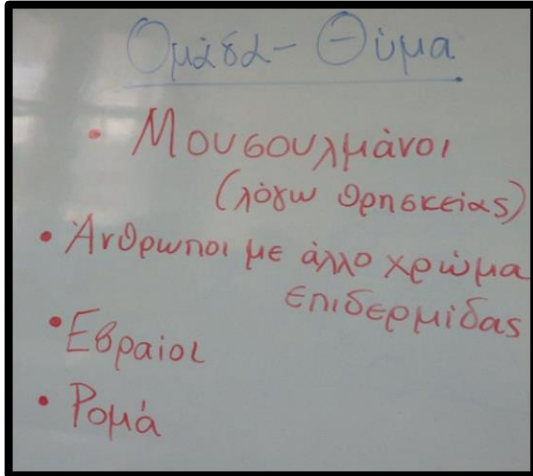 Ομάδα - Θύμα
• Μουσουλμάνοι
(λόγω θρησκείας)
• Άνθρωποι με άλλο χρώμα
επιδερμίδας
• Εβραίοι
• Ρομά